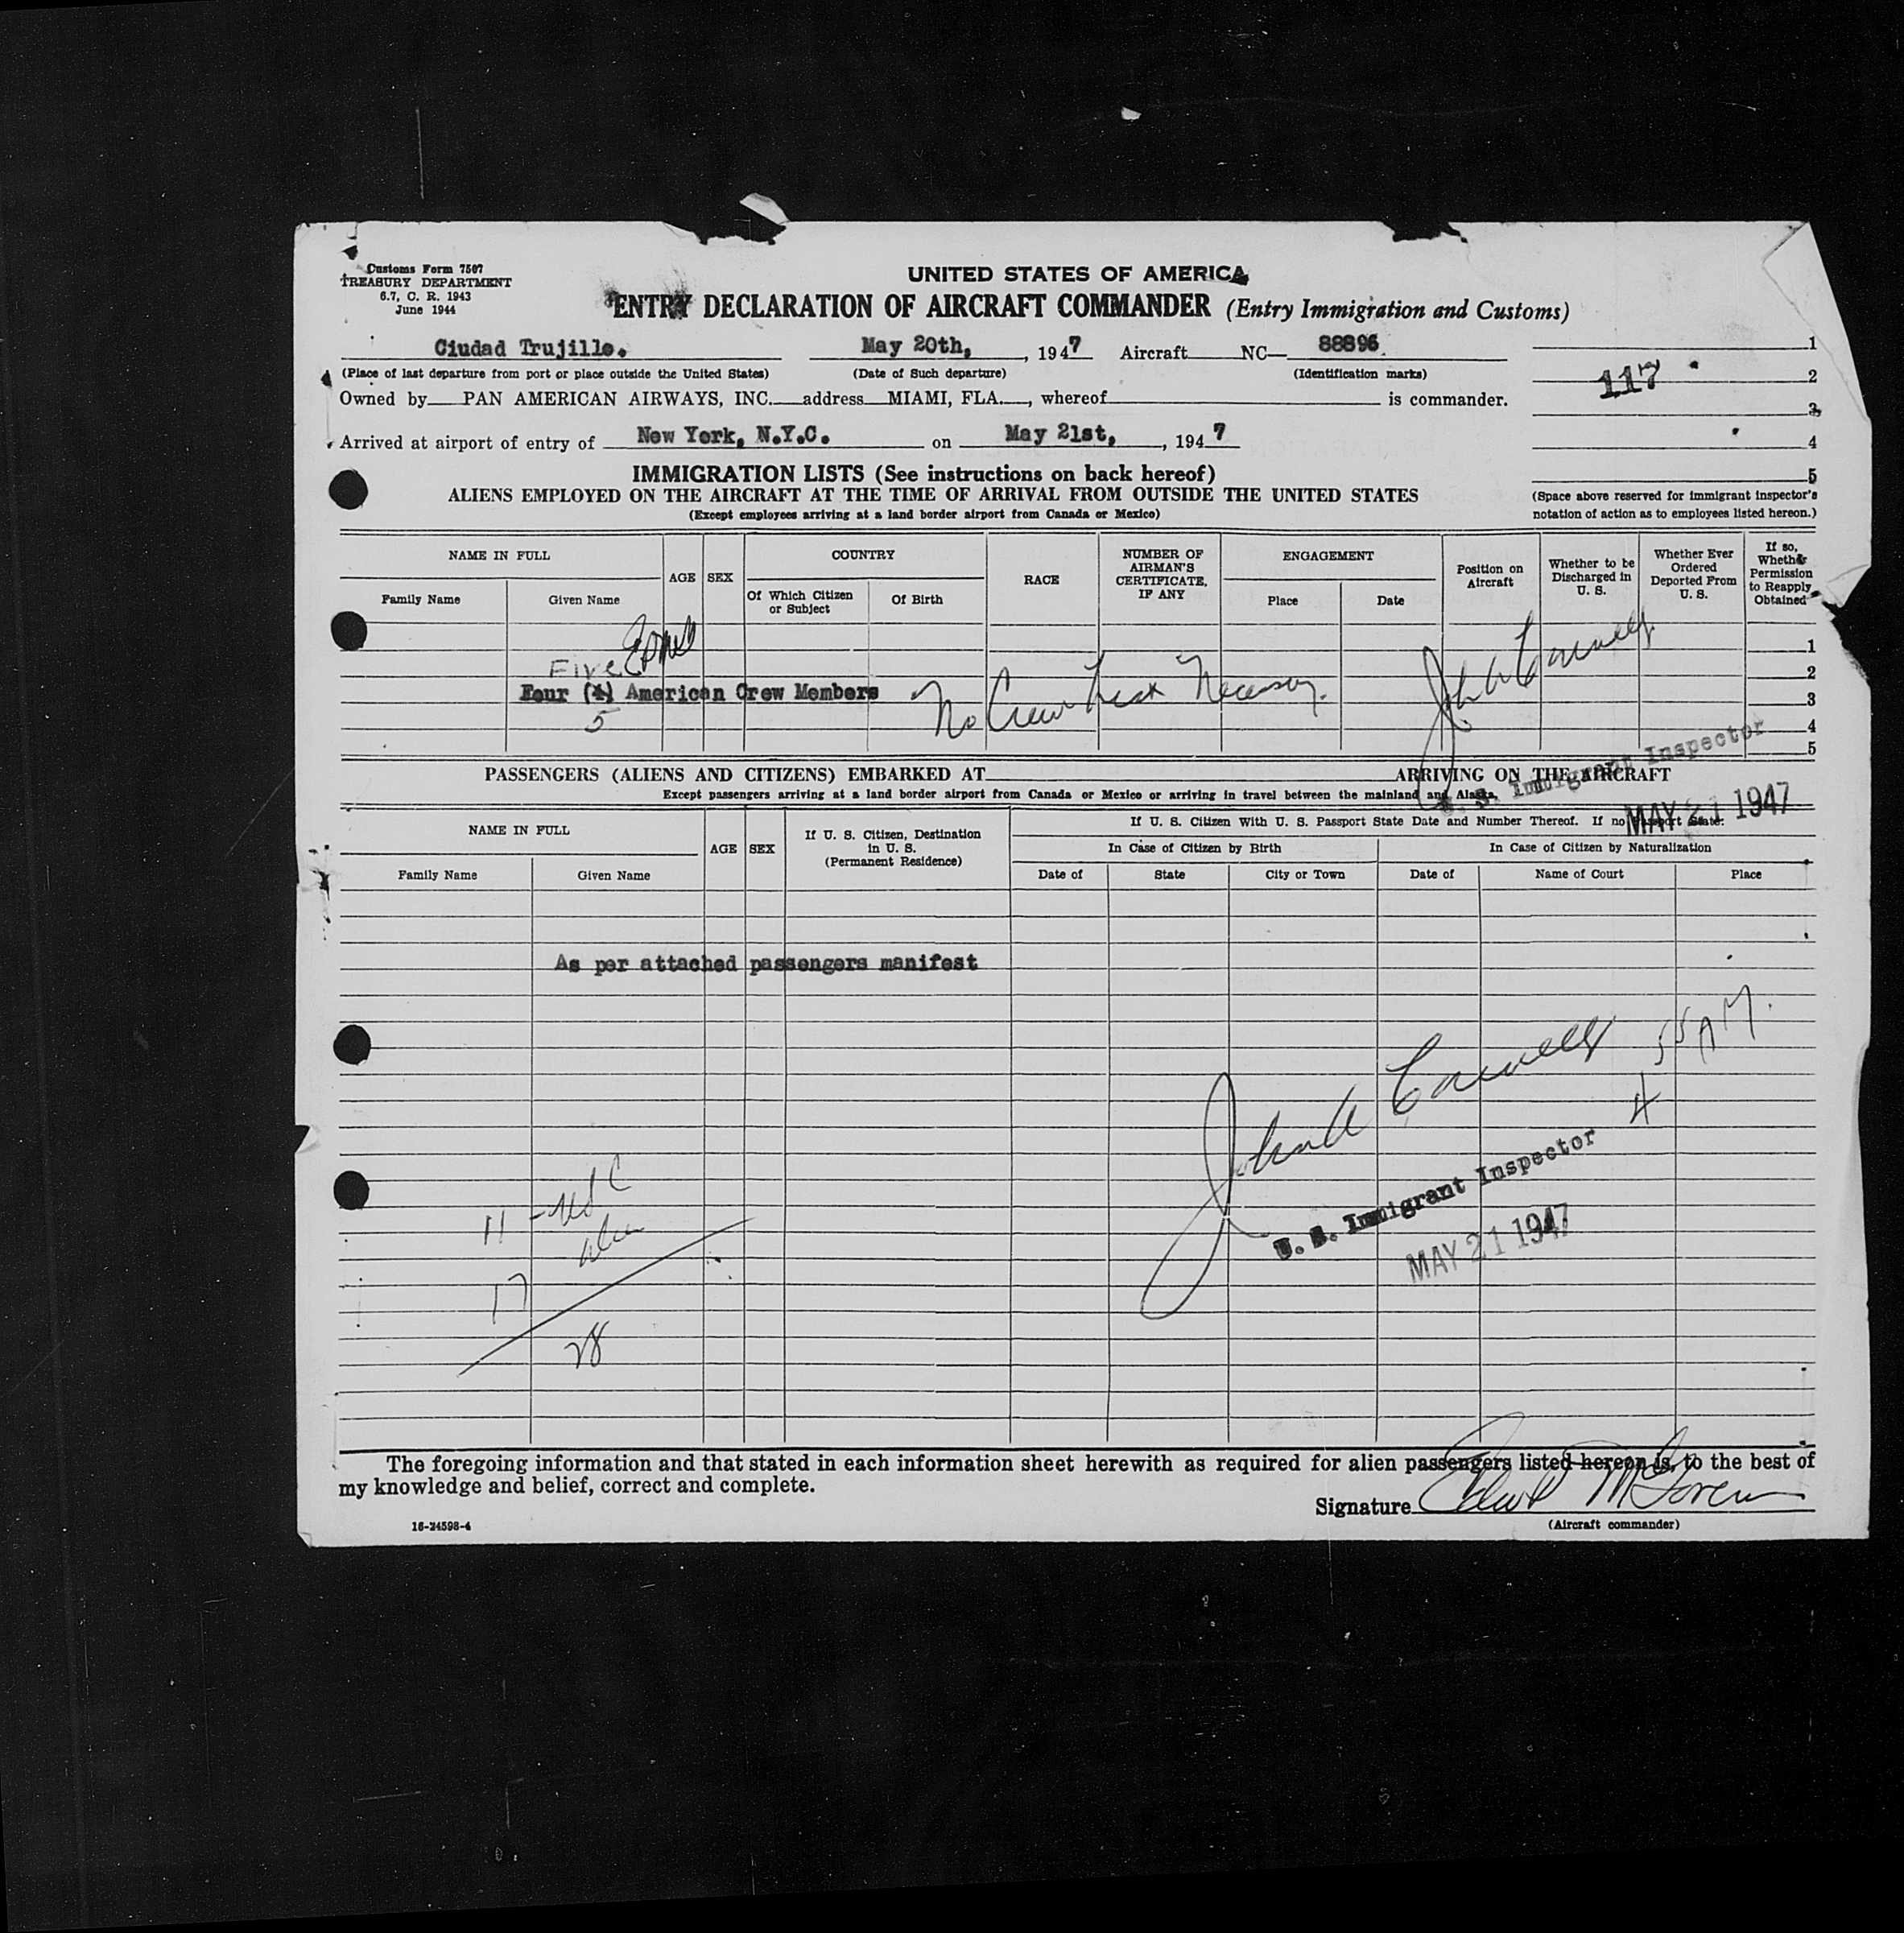 Customs Form 7507
TREASURY DEPARTMENT
6.7, C. R. 1943
June 1944
UNITED STATES OF AMERICA
ENTRY DECLARATION OF AIRCRAFT COMMANDER (Entry Immigration and Customs)
Ciudad Trujillo. May 20th, 1947 Aircraft NC— 88896
(Place of last departure from port or place outside the United States) (Date of Such departure) (Identification marks)
Owned by PAN AMERICAN AIRWAYS, INC. address MIAMI, FLA., whereof is commander.
Arrived at airport of entry of New York, N.Y.C. on May 21st, 1947
1
117 2
3
4
5
(Space above reserved for immigrant inspector's
notation of action as to employees listed hereon.)
IMMIGRATION LISTS (See instructions on back hereof)
ALIENS EMPLOYED ON THE AIRCRAFT AT THE TIME OF ARRIVAL FROM OUTSIDE THE UNITED STATES
(Except employees arriving at a land border airport from Canada or Mexico)
NAME IN FULL
Family Name Given Name
AGE SEX
COUNTRY
Of Which Citizen or Subject
Of Birth
RACE
NUMBER OF AIRMAN'S CERTIFICATE, IF ANY
ENGAGEMENT
Place Date
Position on Aircraft
Whether to be Discharged in U. S.
Whether Ever Ordered Deported From U. S.
If so, Whether Permission to Reapply Obtained
1
2
3
4
5
Five
Four (4) American Crew Members No Crew List Necessary.
5
U. S. Immigrant Inspector
MAY 21 1947
PASSENGERS (ALIENS AND CITIZENS) EMBARKED AT ARRIVING ON THE AIRCRAFT
Except passengers arriving at a land border airport from Canada or Mexico or arriving in travel between the mainland and Alaska.
NAME IN FULL
Family Name Given Name
AGE SEX
If U. S. Citizen, Destination in U. S. (Permanent Residence)
If U. S. Citizen With U. S. Passport State Date and Number Thereof. If no Passport State:
In Case of Citizen by Birth In Case of Citizen by Naturalization
Date of State City or Town Date of Name of Court Place
As per attached passengers manifest
4 55 AM.
U. S. Immigrant Inspector
MAY 21 1947
11 - USC
17 alien
28
The foregoing information and that stated in each information sheet herewith as required for alien passengers listed hereon is, to the best of
my knowledge and belief, correct and complete.
Signature
(Aircraft commander)
16-24598-4